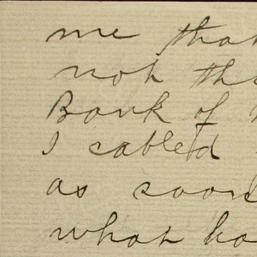 me that
not the
Bank of
I cabled
as soon
what ha